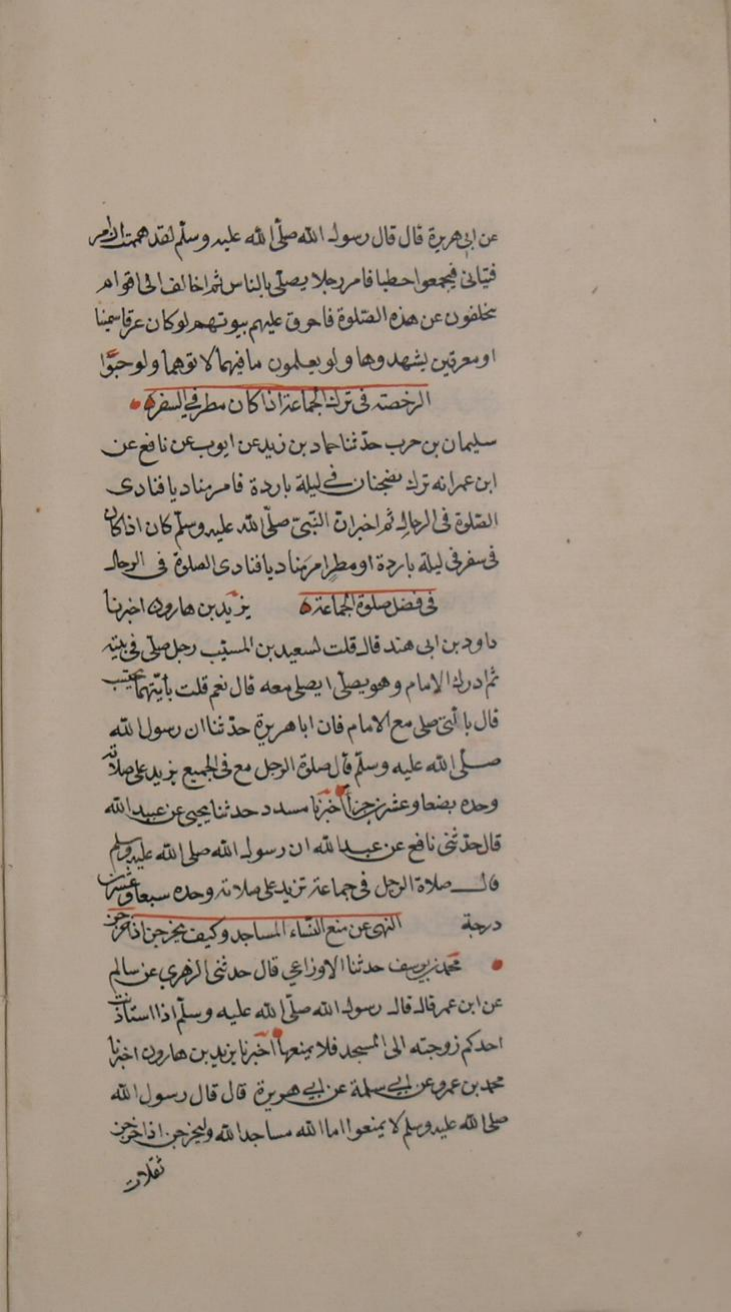 عن ابي هريرة قال قال رسول الله صلى الله عليه وسلم لقد هممت ان امر
فتيانى فيجمعوا حطبا فامر رجلا يصلى بالناس ثم اخالف الى اقوام
يتخلفون عن هذه الصلوة فاحرق عليهم بيوتهم لو كان عرقا سمينا
او معرقين يشهدوها ولو يعلمون ما فيهما لاتوهما ولو حبوا
الرخصة فى ترك الجماعة اذا كان مطر في السفر
سليمان بن حرب حدثنا حماد بن زيد عن ايوب عن نافع عن
ابن عمر انه نزل بضجنان في ليلة باردة فامر مناديا فنادى
الصلوة فى الرحال ثم اخبر ان النبى صلى الله عليه وسلم كان اذا كان
فى سفر فى ليلة باردة او مطر امر مناديا فنادى الصلوة فى الرحال
فى فضل صلوة الجماعة يزيد بن هارون اخبرنا
داود بن ابى هند قال قلت لسعيد بن المسيب رجل صلى فى بيته
ثم ادرك الامام وهو يصلى ايصلى معه قال نعم قلت بأيتهما يحتسب
قال بالتى صلى مع الامام فان ابا هريرة حدثنا ان رسول الله
صلى الله عليه وسلم قال صلوة الرجل مع فى الجميع يزيد على صلاته
وحده بضعا وعشرين جزأ اخبرنا مسدد حدثنا يحيى عن عبيد الله
قال حدثنى نافع عن عبد الله ان رسول الله صلى الله عليه وسلم
قال صلاة الرجل فى جماعة تزيد على صلاته وحده سبعا وعشرين
درجة النهى عن منع النساء المساجد وكيف يخرجن اذا خرجن
محمد بن يوسف حدثنا الاوزاعي قال حدثنى الزهري عن سالم
عن ابن عمر قال قال رسول الله صلى الله عليه وسلم اذا استاذنت
احدكم زوجته الى المسجد فلا يمنعها اخبرنا يزيد بن هارون اخبرنا
محمد بن عمرو عن ابي سلمة عن ابي هريرة قال قال رسول الله
صلى الله عليه وسلم لا يمنعوا اما الله مساجد الله وليخرجن اذا خرجن
ثفلات